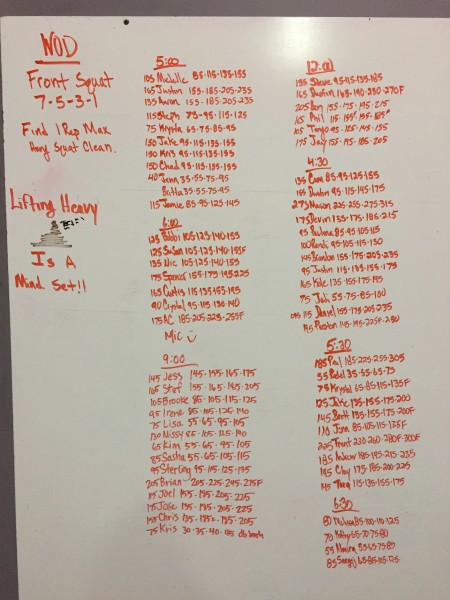 WOD
Front Squat
7-5-3-1
Find 1 Rep Max
Hang Squat Clean
Lifting Heavy
Is A
Mind Set!!
5:00
105 Michelle 85-115-135-155
165 Justin 155-185-205-235
135 Aaron 155-185-205-235
115 Steph 75-95-115-125
75 Krysta 65-75-85-95
150 Jake 95-115-135-155
150 Kris 95-115-135-155
150 Chad 95-115-135-155
40 Jenn 35-55-75-95
Britta 35-55-75-95
115 Jamie 85-95-125-145
6:00
125 Bobbi 105-123-140-155
125 SuSan 105-123-140-155F
135 Nic 105-125-140-155
175 Spencer 155-175-195-225
165 Curtis 115-135-155-195
90 Crystal 95-115-130-140
175 AC 185-205-225-255F
Mic
9:00
145 Jess 145-155-165-175
105 Stef 155-165-185-205
105 Brooke 85-105-115-125
95 Irene 85-105-125-140
75 Lisa 55-65-95-105
130 Missy 85-105-125-140
65 Kim 55-65-95-105
85 Sasha 55-65-105-115
95 Sterling 95-115-125-135
205 Brian 205-225-245-275F
115 Joel 155-185-205-225
175 Jose 135-185-205-225
155 Chris 135-185-185-205
75 Kris 30-35-40-
12:00
135 Steve 95-115-135-185
165 Dustin 165-190-230-270F
205 Ben 155-175-195-215
165 Phil 115-155-
165 Tango 95-105-145-155
175 Jay 155-175-185-205
4:30
135 Cam 85-95-125-155
155 Dustin 95-115-145-175
275 Mason 225-255-275-315
175 Devin 135-175-185-215
95 Paulina 85-95-105-115
100 Randi 95-105-115-130
145 Brandon 155-175-205-235
95 Justin 115-135-155-175
165 Kyle 135-155-175-195
75 Jodi 55-75-85-100
115 Daniel 155-175-205-235
145 Preston 145-195-225F-230
5:30
185 Paul 185-225-255-305
55 Patel 35-55-65-75
75 Krystal 65-85-115-135F
125 Jake 135-155-175-200
145 Brett 135-155-175-200F
110 Jenn 85-105-115-135F
225 Trent 230-260-280F-300F
185 Andrew 185-195-215-235
195 Clay 175-185-200-225
145 Thang 115-135-155-175
6:30
80 Melissa 85-100-110-125
70 Kathy 55-70-75-80
55 Monira 55-65-75-85
85 65-85-115-125